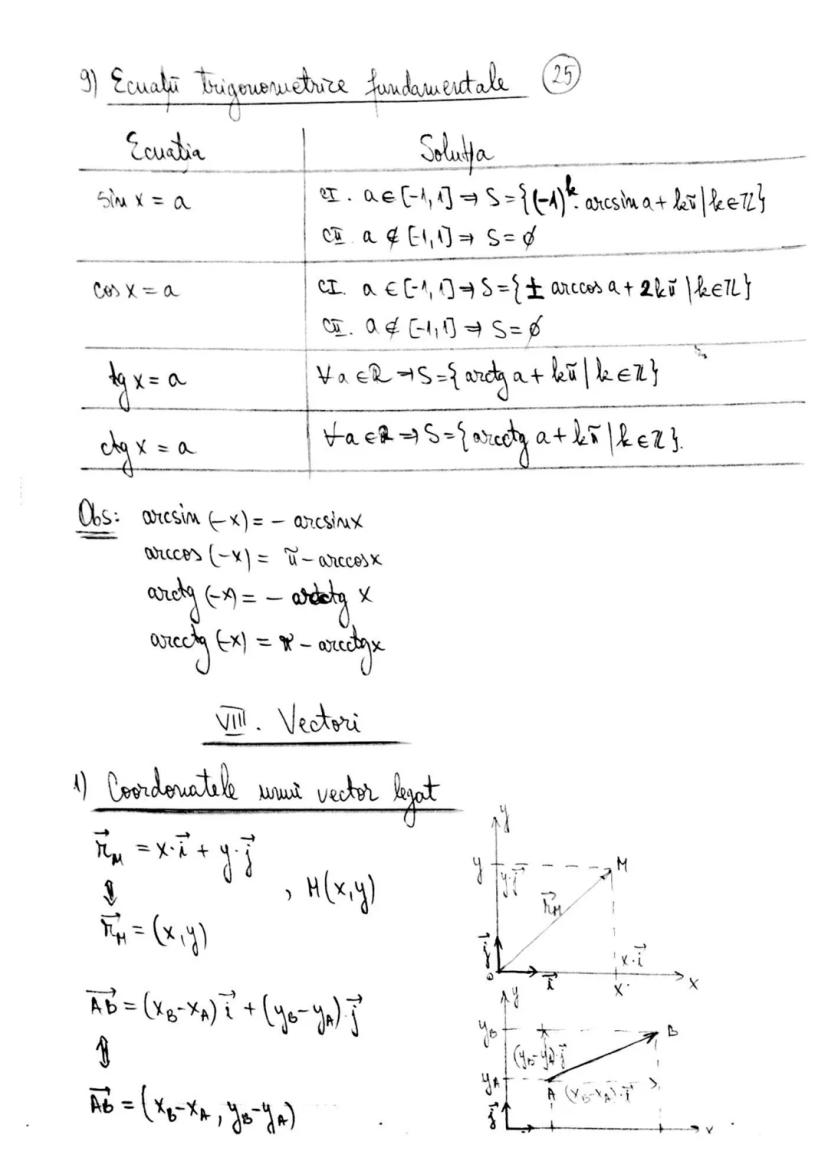 9) Ecuații trigonometrice fundamentale 25
Ecuația Soluția
sin x = a CI. a ∈ [-1,1] ⇒ S = {(-1)^k · arcsin a + kπ | k ∈ ℤ}
CII. a ∉ [-1,1] ⇒ S = ∅
cos x = a CI. a ∈ [-1,1] ⇒ S = {± arccos a + 2kπ | k ∈ ℤ}
CII. a ∉ [-1,1] ⇒ S = ∅
tg x = a ∀ a ∈ ℝ ⇒ S = {arctg a + kπ | k ∈ ℤ}
ctg x = a ∀ a ∈ ℝ ⇒ S = {arcctg a + kπ | k ∈ ℤ}.
Obs: arcsin (-x) = - arcsin x
arccos (-x) = π - arccos x
arctg (-x) = - arctg x
arcctg (-x) = π - arcctg x
VIII. Vectori
1) Coordonatele unui vector legat
r⃗_M = x·i⃗ + y·j⃗
⇕ , M(x,y)
r⃗_M = (x,y)
y
y y·j⃗ M
r⃗_M
j⃗ x·i⃗
O i⃗ x x
AB⃗ = (x_B - x_A) i⃗ + (y_B - y_A) j⃗
⇕
AB⃗ = (x_B - x_A, y_B - y_A)
y
y_B B
(y_B - y_A)·j⃗
y_A A (x_B - x_A)·i⃗
j⃗
x